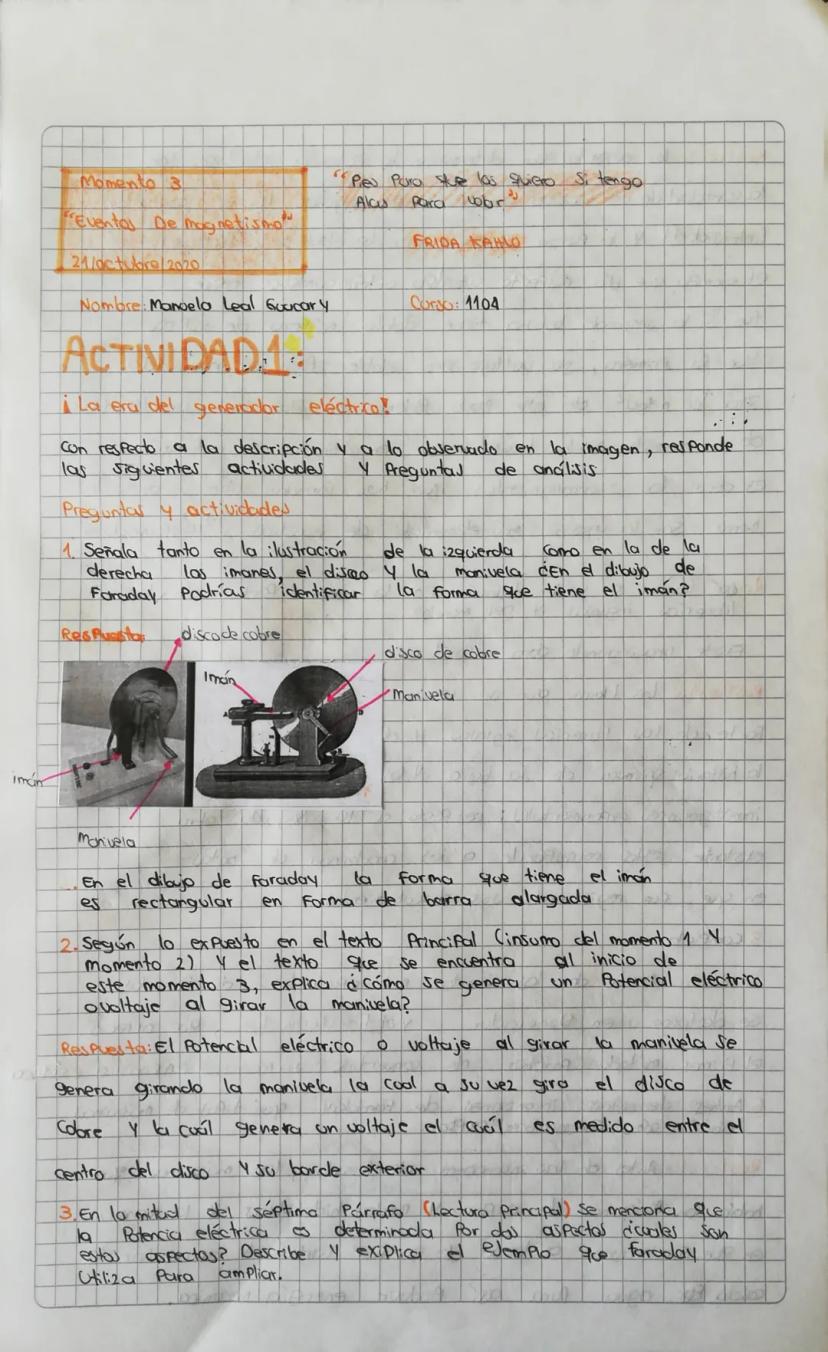 Momento 3
"Eventos De magnetismo"
21/octubre/2020
"Pies Para que los quiero Si tengo
Alas Para volar"
FRIDA KAHLO
Nombre: Manuela Leal
Curso: 1104
ACTIVIDAD 1:
¡La era del generador eléctrico!
Con respecto a la descripción y a lo observado en la imagen, responde
las siguientes actividades y Preguntas de análisis
Preguntas y actividades
1. Señala tanto en la ilustración de la izquierda como en la de la
derecha los imanes, el disco y la manivela ¿En el dibujo de
Faraday Podrías identificar la forma que tiene el imán?
Respuesta
disco de cobre
disco de cobre
Imán
Manivela
imán
Manivela
En el dibujo de Faraday la forma que tiene el imán
es rectangular en forma de barra alargada
2. Según lo expuesto en el texto Principal (insumo del momento 1 Y
momento 2) Y el texto que se encuentra al inicio de
este momento 3, explica ¿cómo se genera un Potencial eléctrico
o voltaje al girar la manivela?
Respuesta: El Potencial eléctrico o voltaje al girar la manivela se
genera girando la manivela la cual a su vez gira el disco de
Cobre Y la cuál genera un voltaje el cuál es medido entre el
centro del disco Y su borde exterior
3. En la mitad del séptimo Párrafo (Lectura Principal) se menciona que
la Potencia eléctrica es determinada Por dos aspectos ¿cuales son
estos aspectos? Describe Y explica el ejemplo que faraday
Utiliza Para ampliar.